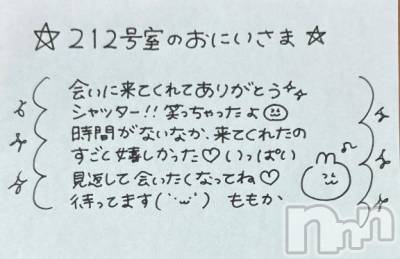 ☆212号室のおにいさま☆
会いに来てくれてありがとう
シャッター!!笑っちゃったよ
時間がないなか、来てくれたの
すごく嬉しかった♡いっぱい
見返して会いたくなってね♡
待ってます(˙꒳˙) ももか